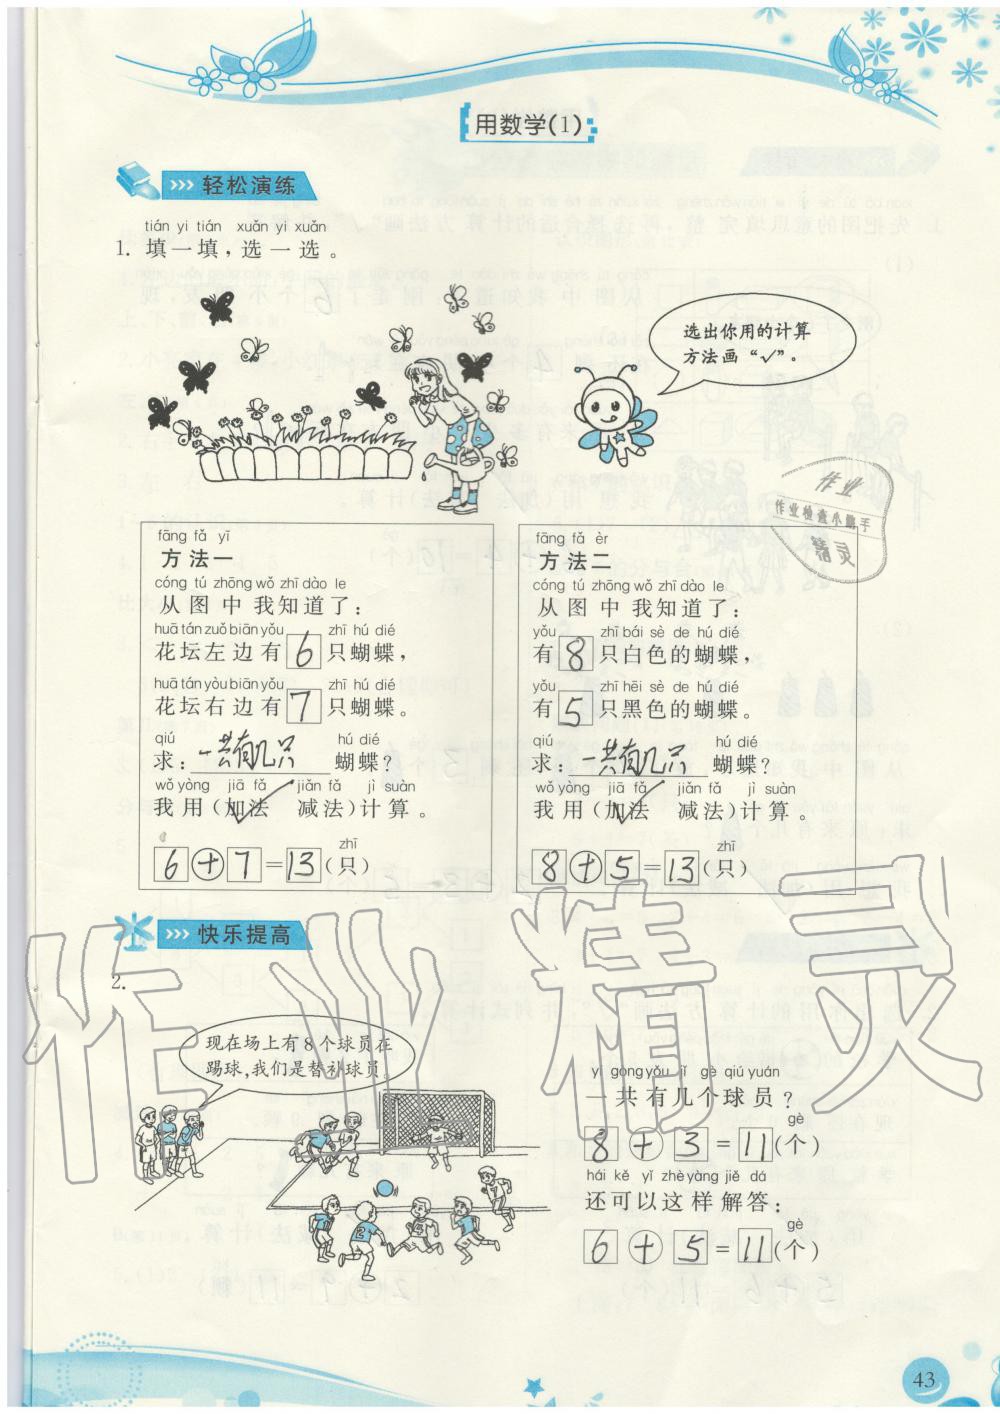 用数学(1)
轻松演练
tián yi tián xuǎn yi xuǎn
1. 填一填,选一选。
选出你用的计算
方法画“√”。
作业
作业检查小助手
精灵
fāng fǎ yī
方法一
cóng tú zhōng wǒ zhī dào le
从图中我知道了:
huā tán zuǒ biān yǒu zhī hú dié
花坛左边有6只蝴蝶,
huā tán yòu biān yǒu zhī hú dié
花坛右边有7只蝴蝶。
qiú hú dié
求:一共有几只蝴蝶?
wǒ yòng jiā fǎ jiǎn fǎ jì suàn
我用(加法√ 减法)计算。
zhī
6+7=13(只)
fāng fǎ èr
方法二
cóng tú zhōng wǒ zhī dào le
从图中我知道了:
yǒu zhī bái sè de hú dié
有8只白色的蝴蝶,
yǒu zhī hēi sè de hú dié
有5只黑色的蝴蝶。
qiú hú dié
求:一共有几只蝴蝶?
wǒ yòng jiā fǎ jiǎn fǎ jì suàn
我用(加法√ 减法)计算。
zhī
8+5=13(只)
快乐提高
2.
现在场上有8个球员在
踢球,我们是替补球员。
yí gòng yǒu jǐ gè qiú yuán
一共有几个球员?
gè
8+3=11(个)
hái kě yǐ zhè yàng jiě dá
还可以这样解答:
gè
6+5=11(个)
作业精灵
43